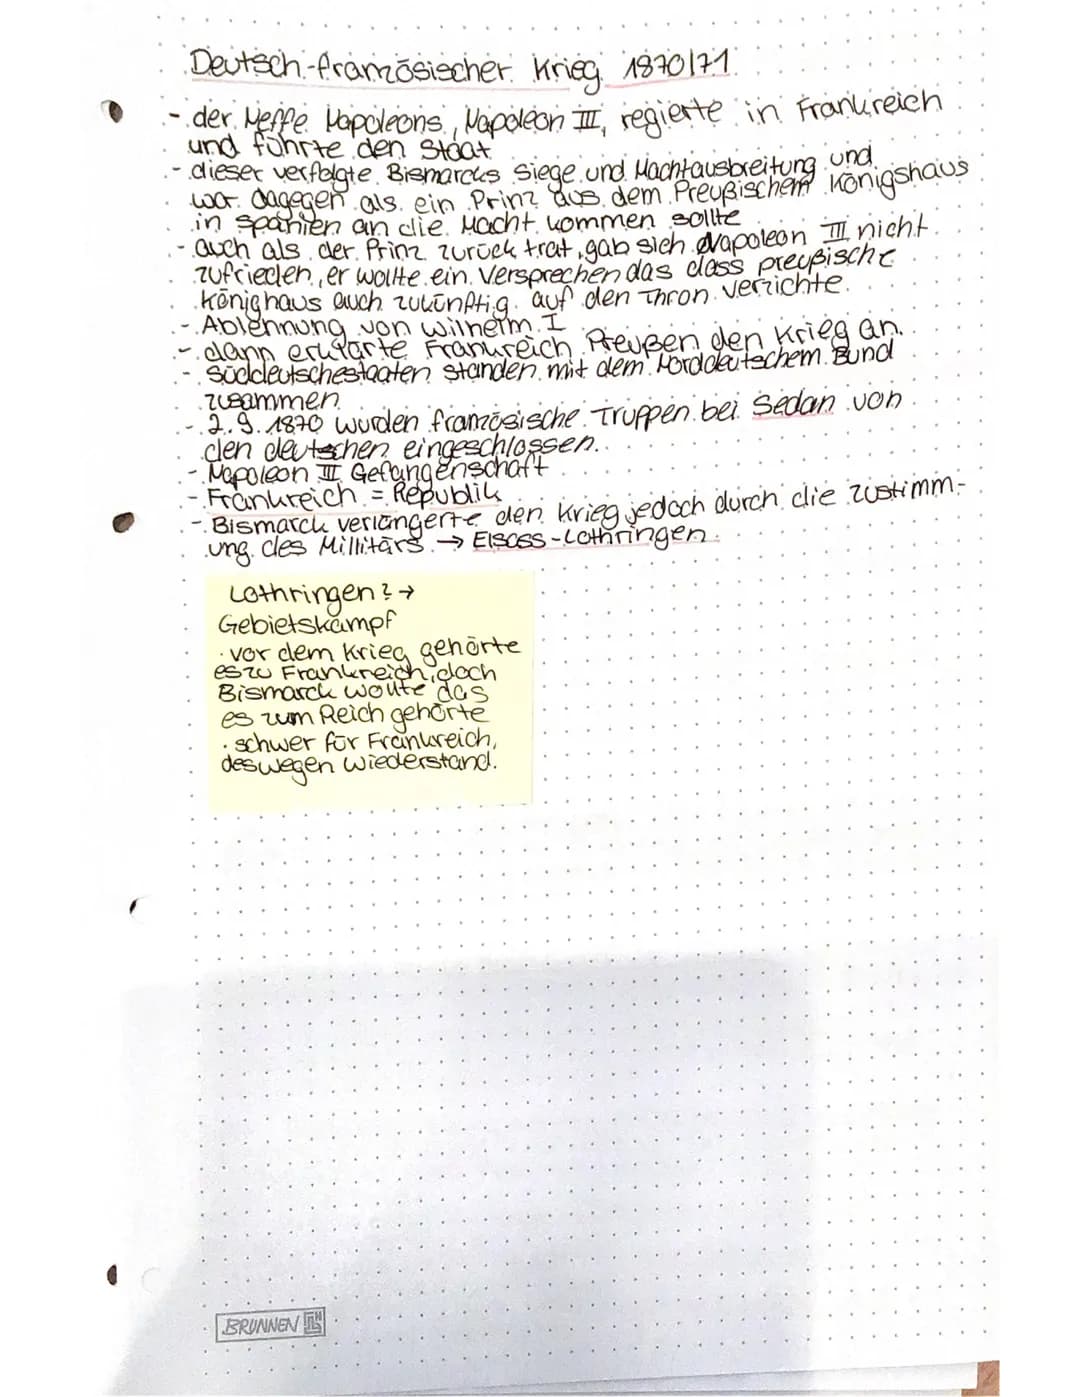 Deutsch-französischer Krieg 1870/71
- der Neffe Napoleons, Napoleon III, regierte in Frankreich
und führte den Staat
- dieser verfolgte Bismarcks Siege und Machtausbreitung und
war dagegen als ein Prinz aus dem Preußischem Königshaus
in Spanien an die Macht kommen sollte
- auch als der Prinz zurück trat, gab sich Napoleon III nicht
zufrieden, er wollte ein Versprechen das dass preußische
könighaus auch zukünftig auf den Thron verzichte.
- Ablehnung von Wilhelm I
- dann erklärte Frankreich Preußen den Krieg an.
- Süddeutschestaaten standen mit dem Norddeutschem Bund
zusammen
- 2.9.1870 wurden französische Truppen bei Sedan von
den deutschen eingeschlossen.
- Napoleon III Gefangenschaft
- Frankreich = Republik
- Bismarck verlängerte den Krieg jedoch durch die zustimm-
ung des Millitärs → Elsass-Lothringen
Lothringen? →
Gebietskampf
· vor dem Krieg gehörte
es zu Frankreich, doch
Bismarck wollte das
es zum Reich gehörte
· schwer für Frankreich,
deswegen wiederstand.
BRUNNEN